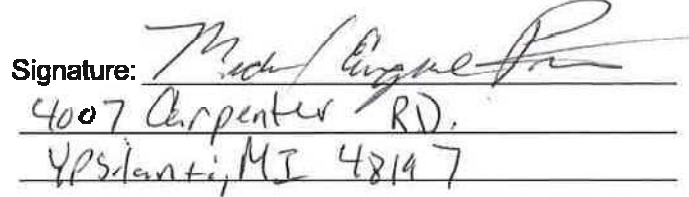 Signature:
4007 Carpenter RD.
YPSilanti, MI 48197